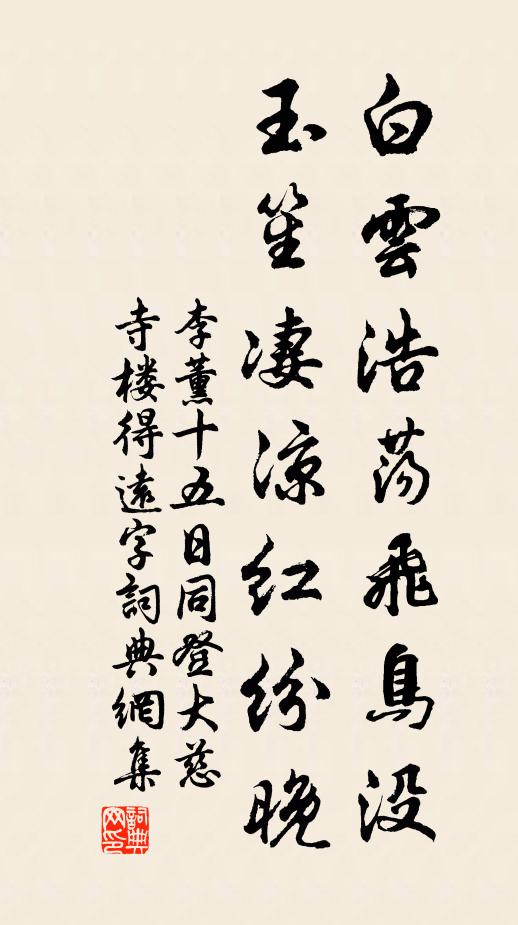 白雲浩蕩飛鳥没
玉笙凄涼紅紛晚
李薰十五日同登大慈
寺楼得遠字詞典網集
詞典
网印